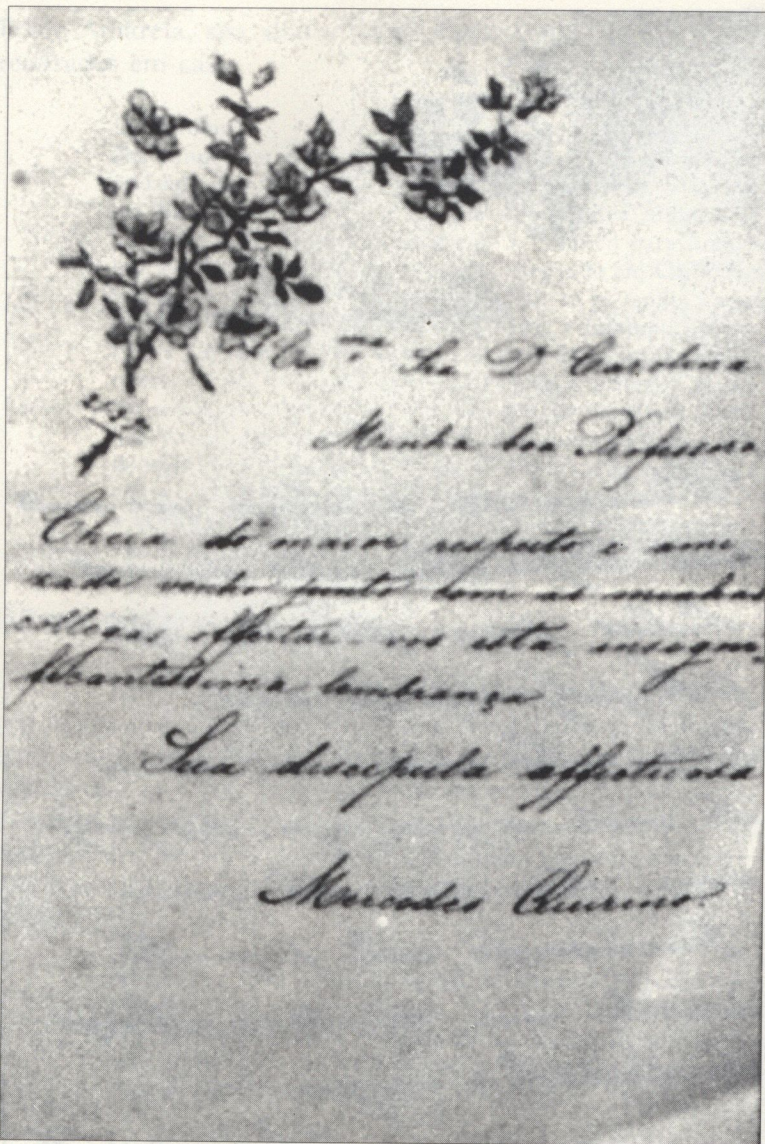 Ex^ma Sra D Carolina
Minha boa Professora
Cheia do maior respeito e ami-
zade venho junto com as minhas
collegas offertar-vos esta insigni-
ficantissima lembrança
Sua discipula affectuosa
Mercedes Quirino